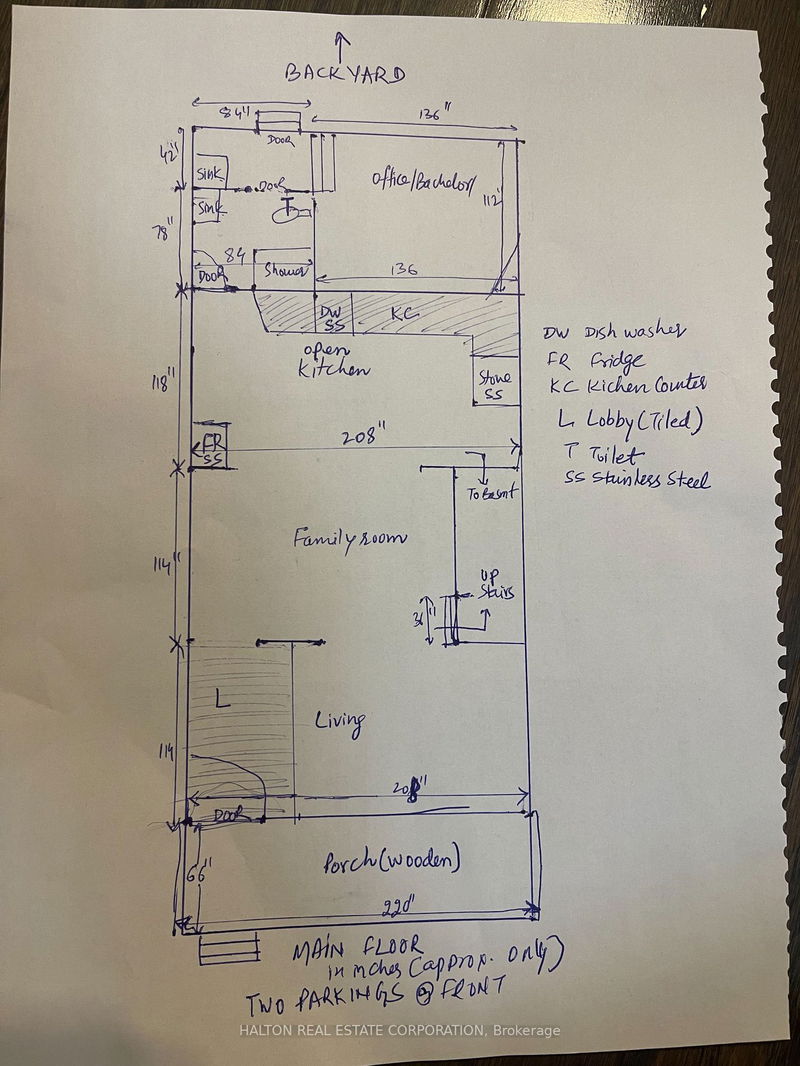 BACKYARD
84"
136"
DOOR
42"
Sink
DOOR
office/Bachelor
112"
Sink
T
78"
84
Door
Shower
136
DW
SS
KC
open
Kitchen
118"
Stone
SS
FR
SS
208"
To Basmt
DW Dish washer
FR Fridge
KC Kichen Counter
L Lobby (Tiled)
T Toilet
SS Stainless Steel
Family room
114"
UP
Stairs
36"
L
Living
114
208"
DOOR
66"
Porch (wooden)
220"
MAIN FLOOR
in inches (approx. only)
TWO PARKINGS @ FRONT
HALTON REAL ESTATE CORPORATION, Brokerage